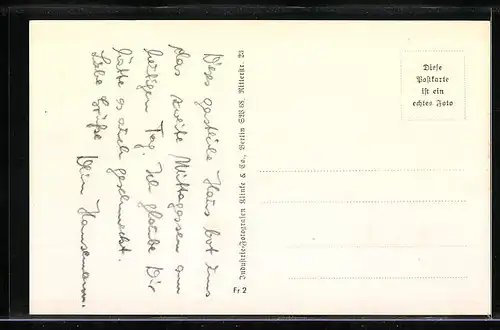 Dies gastliche Haus bot uns
das zweite Mittagessen am
heutigen Tag. Ich glaube Dir
hätte es auch geschmeckt.
Liebe Grüße Dein Hansemann.
Industrie-Fotografen Klinke & Co., Berlin SW 68, Ritterstr. 23
Fr 2
Diese
Postkarte
ist ein
echtes Foto